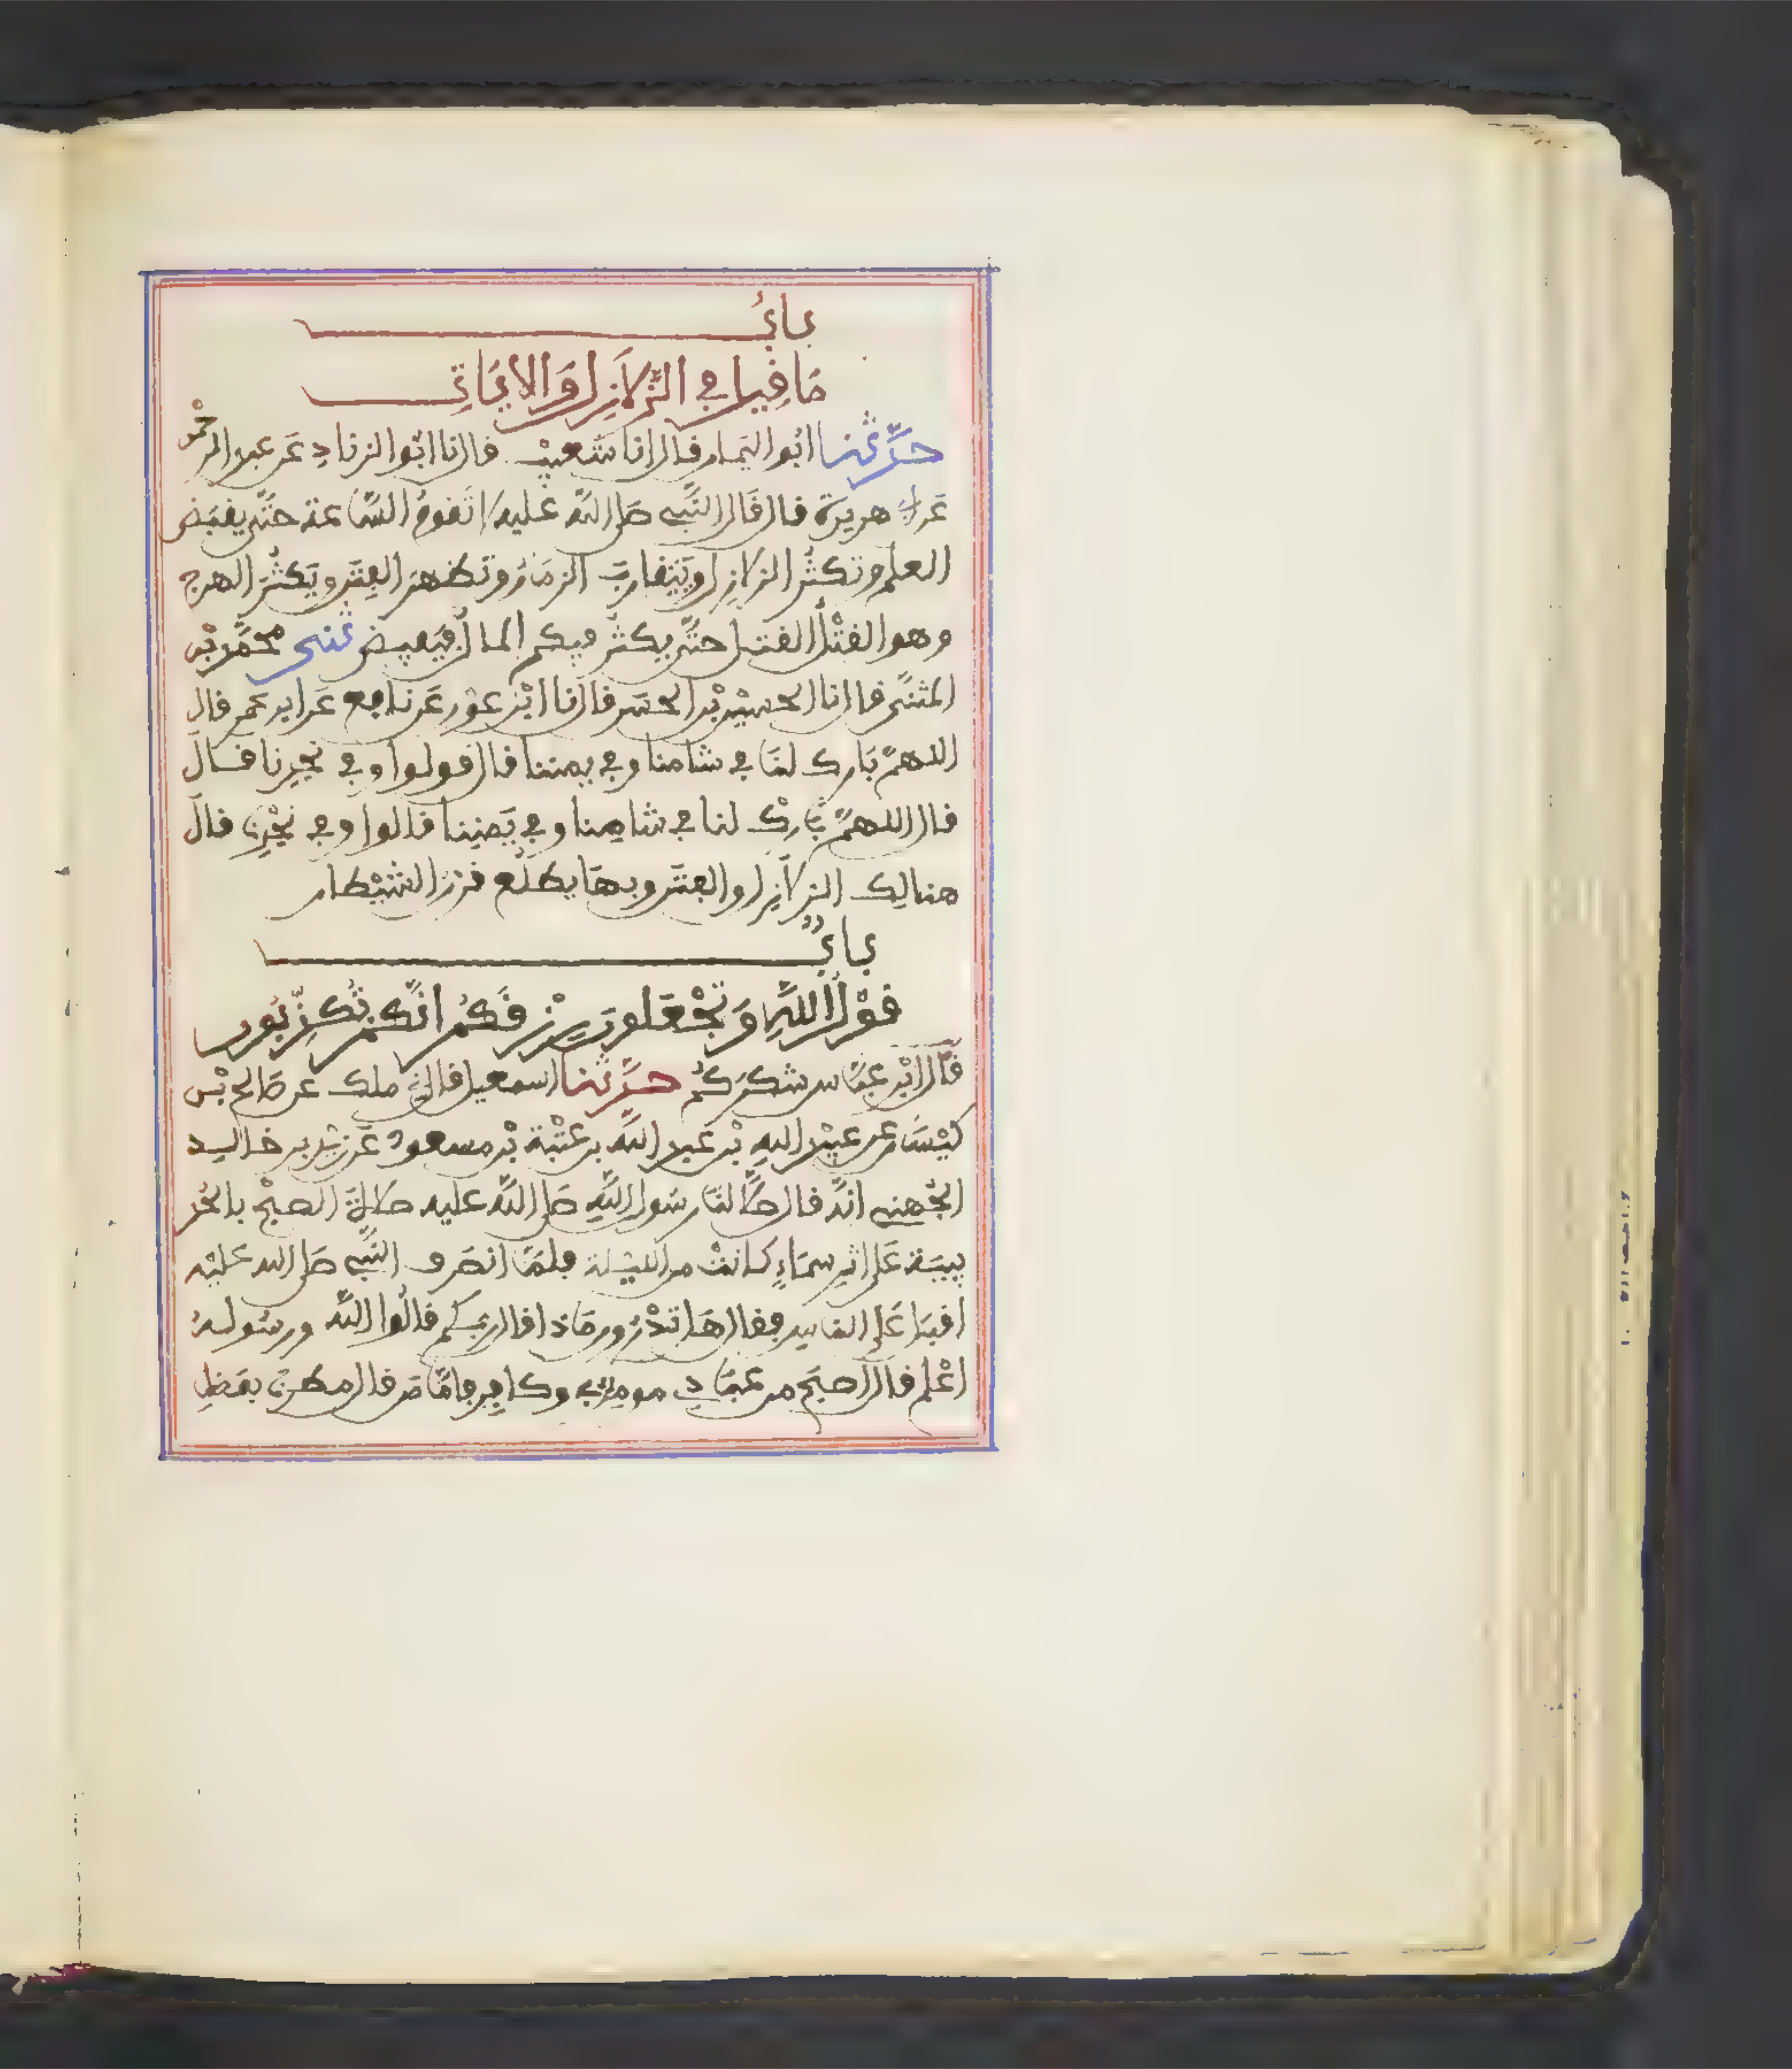 بابُ
مَا فِيلَ في الزَّلَازِلِ وَالايَاتِ
حدَّثنا ابُو اليَمان فال انا شُعيبْ فال انا ابُو الزنادِ عَن عبد الرحمن
عَن أبى هريرَة فال فَال النَّبى صَلى اللَّه عَليه لا تَفومُ السَّاعة حتَّى يفبَض
العلم وتكثُر الزلازِل ويَتفاربَ الزمَان وتظهرَ الفِتَن ويَكثُرَ الهرج
وهو الفتْلُ الفتل حتَّى يكثُر فيكم المالُ فيَفيض ثنى محمَّد بْن
المثنَّى فال نا الحسيْن بْن الحسَن فال نا ابْن عوْن عَن نافع عَن ابن عمر فال
اللهمَّ بَارك لنَا في شامنا وفي يمننا فال فولوا وفي نجدِنا فال
فال اللهمَّ بَارِكْ لنا في شامِنا وفي يَمنِنا فالوا وفي نجْدِنا فال
هنالِك الزلَازِل والفتَن وبهَا يطلُع فرن الشيْطان
بابُ
فوْل اللَّهِ وَتَجْعَلون رِزْفَكُم انَّكُمْ تُكَذِّبُون
فَال ابْن عبَّاس شكرَكُمْ حدَّثنا اسمعيل فال ثنى ملك عن صَالح بْن
كيْسَان عن عبيْد اللهِ بْن عَبد اللَّه بن عُتْبة بْن مسعودْ عَن زيْد بن خالِد
الجُهنِى انَّه فال صلَّى لنَا رسُول اللَّهِ صَلى اللَّه عليه صَلاةَ الصبْح بالحُدَ
يبيَة عَلى اثرِ سمَاءٍ كانتْ من الليْلة فلمَّا انصَرف النَّبى صَلى الله عَليْه
افبَل عَلى الناس ففال هَل تدْرُون مَاذا فال ربكم فالُوا اللَّه ورسُولهُ
اعْلم فال اصبَح من عبَادِى مومنٌ بى وكافِر فامَّا مَن فال مطرنَا بفَضلِ